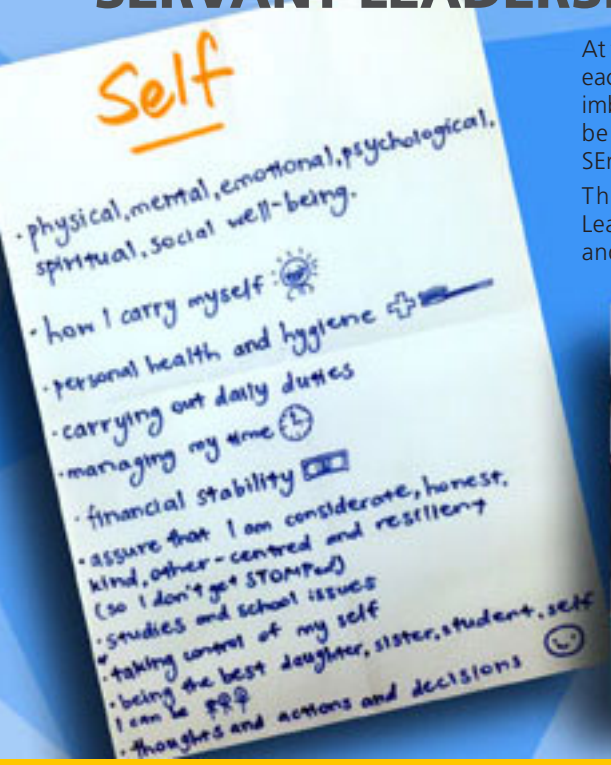 SERVANT LEADERS
Self
• physical, mental, emotional, psychological,
spiritual, social well-being.
• how I carry myself
• personal health and hygiene
• carrying out daily duties
• managing my time
• financial stability
• assure that I am considerate, honest,
kind, other-centred and resilient
(so I don't get STOMPed)
• studies and school issues
• taking control of my self
• being the best daughter, sister, student, self
I can be
• thoughts and actions and decisions
At
eac
imb
be
SEr
Th
Lea
and